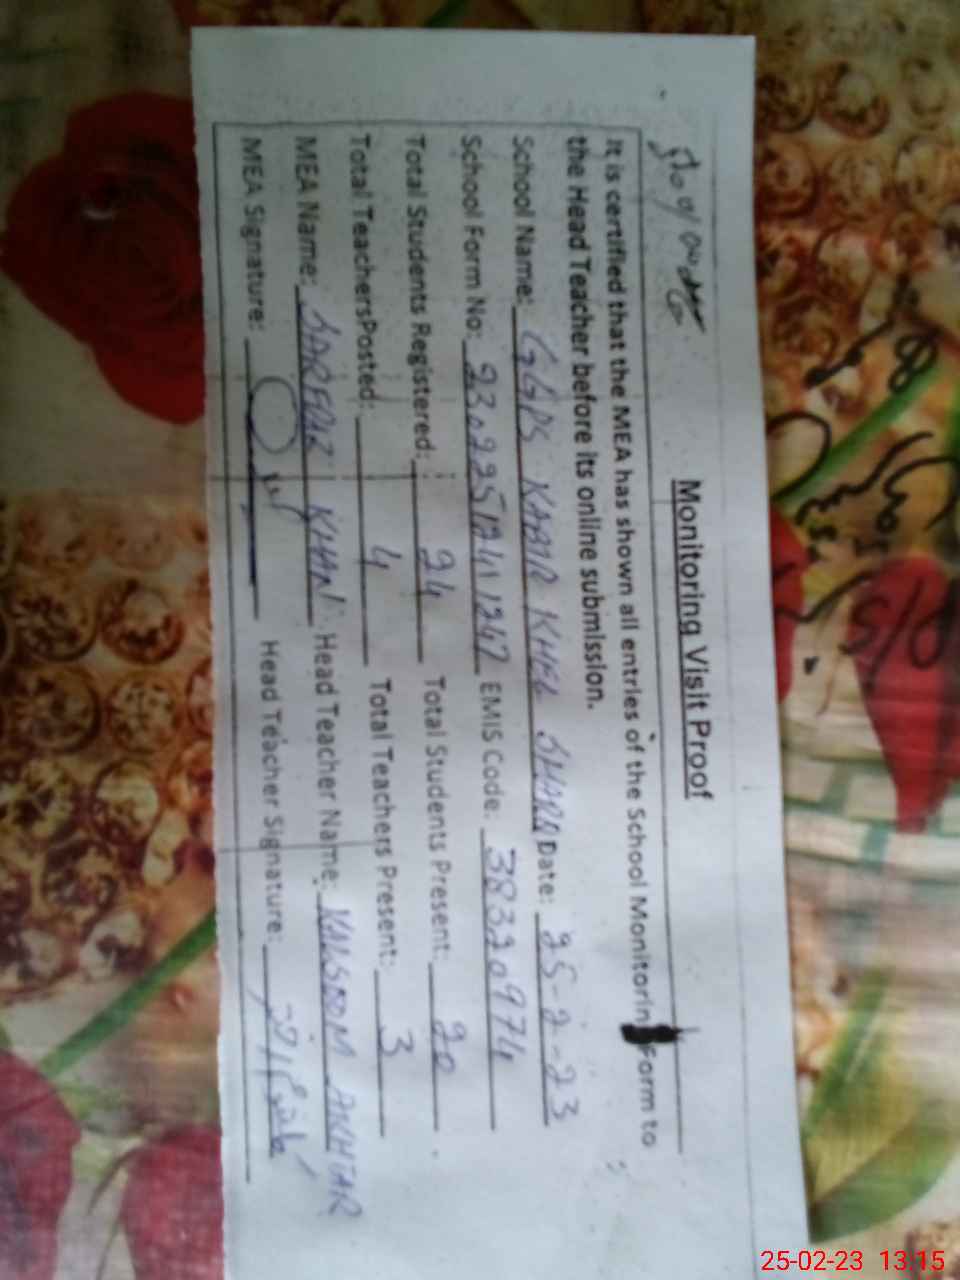 Monitoring Visit Proof
It is certified that the MEA has shown all entries of the School Monitorin Form to
the Head Teacher before its online submission.
School Name: GGPS KABIR KHEL SHARQ Date: 25-2-23
School Form No: 23022512411247 EMIS Code: 38320974
Total Students Registered: 24 Total Students Present: 20
Total TeachersPosted: 4 Total Teachers Present: 3
MEA Name: SARFRAZ KHAN Head Teacher Name: KALSOOM AKHTAR
MEA Signature: Head Teacher Signature:
25-02-23 13:15